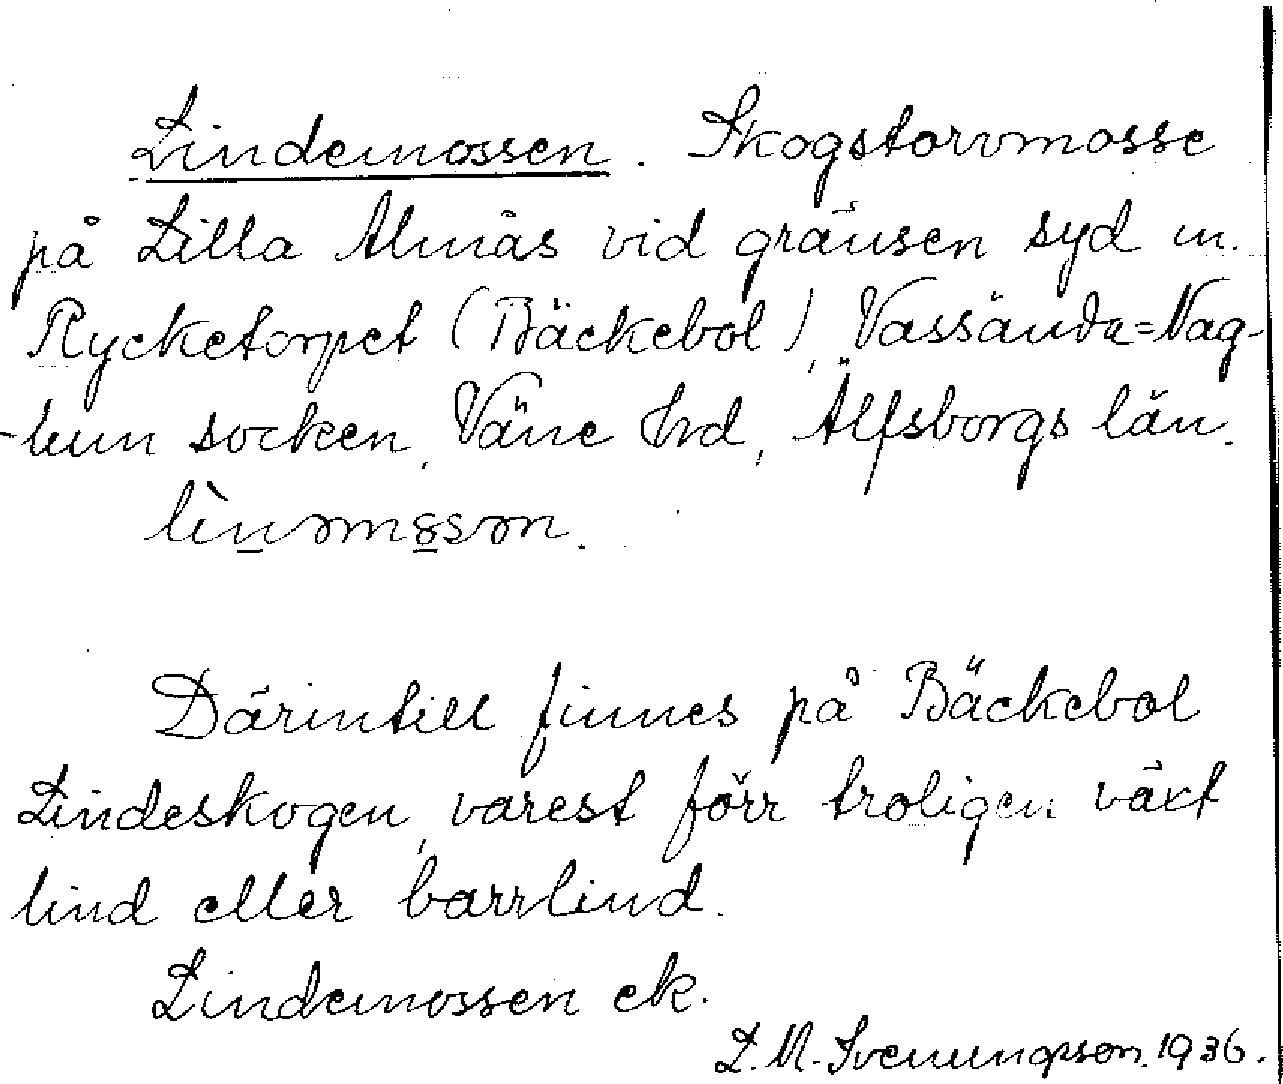 Lindemossen. Skogstorvmosse
på Lilla Almäs vid gränsen syd m.
Rycketorpet (Bäckebol), Vassända=Nag-
-lum socken, Väne hrd, Älfsborgs län.
lìnǝms̲sǝn.
Därintill finnes på Bäckebol
Lindeskogen, varest förr troligen växt
lind eller barrlind.
Lindemossen ek.
L. M. Svenungsson. 1936.